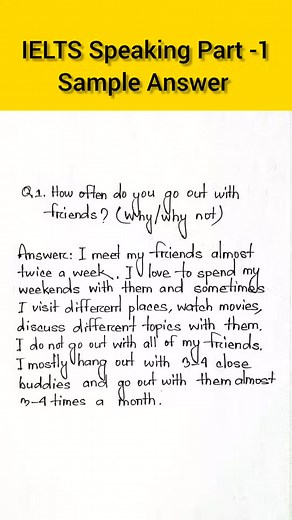 IELTS Speaking Part -1
Sample Answer
Q1. How often do you go out with
friends? (why/why not)
Answer: I meet my friends almost
twice a week. I love to spend my
weekends with them and sometimes
I visit different places, watch movies,
discuss different topics with them.
I do not go out with all of my friends.
I mostly hang out with 3-4 close
buddies and go out with them almost
3-4 times a month.